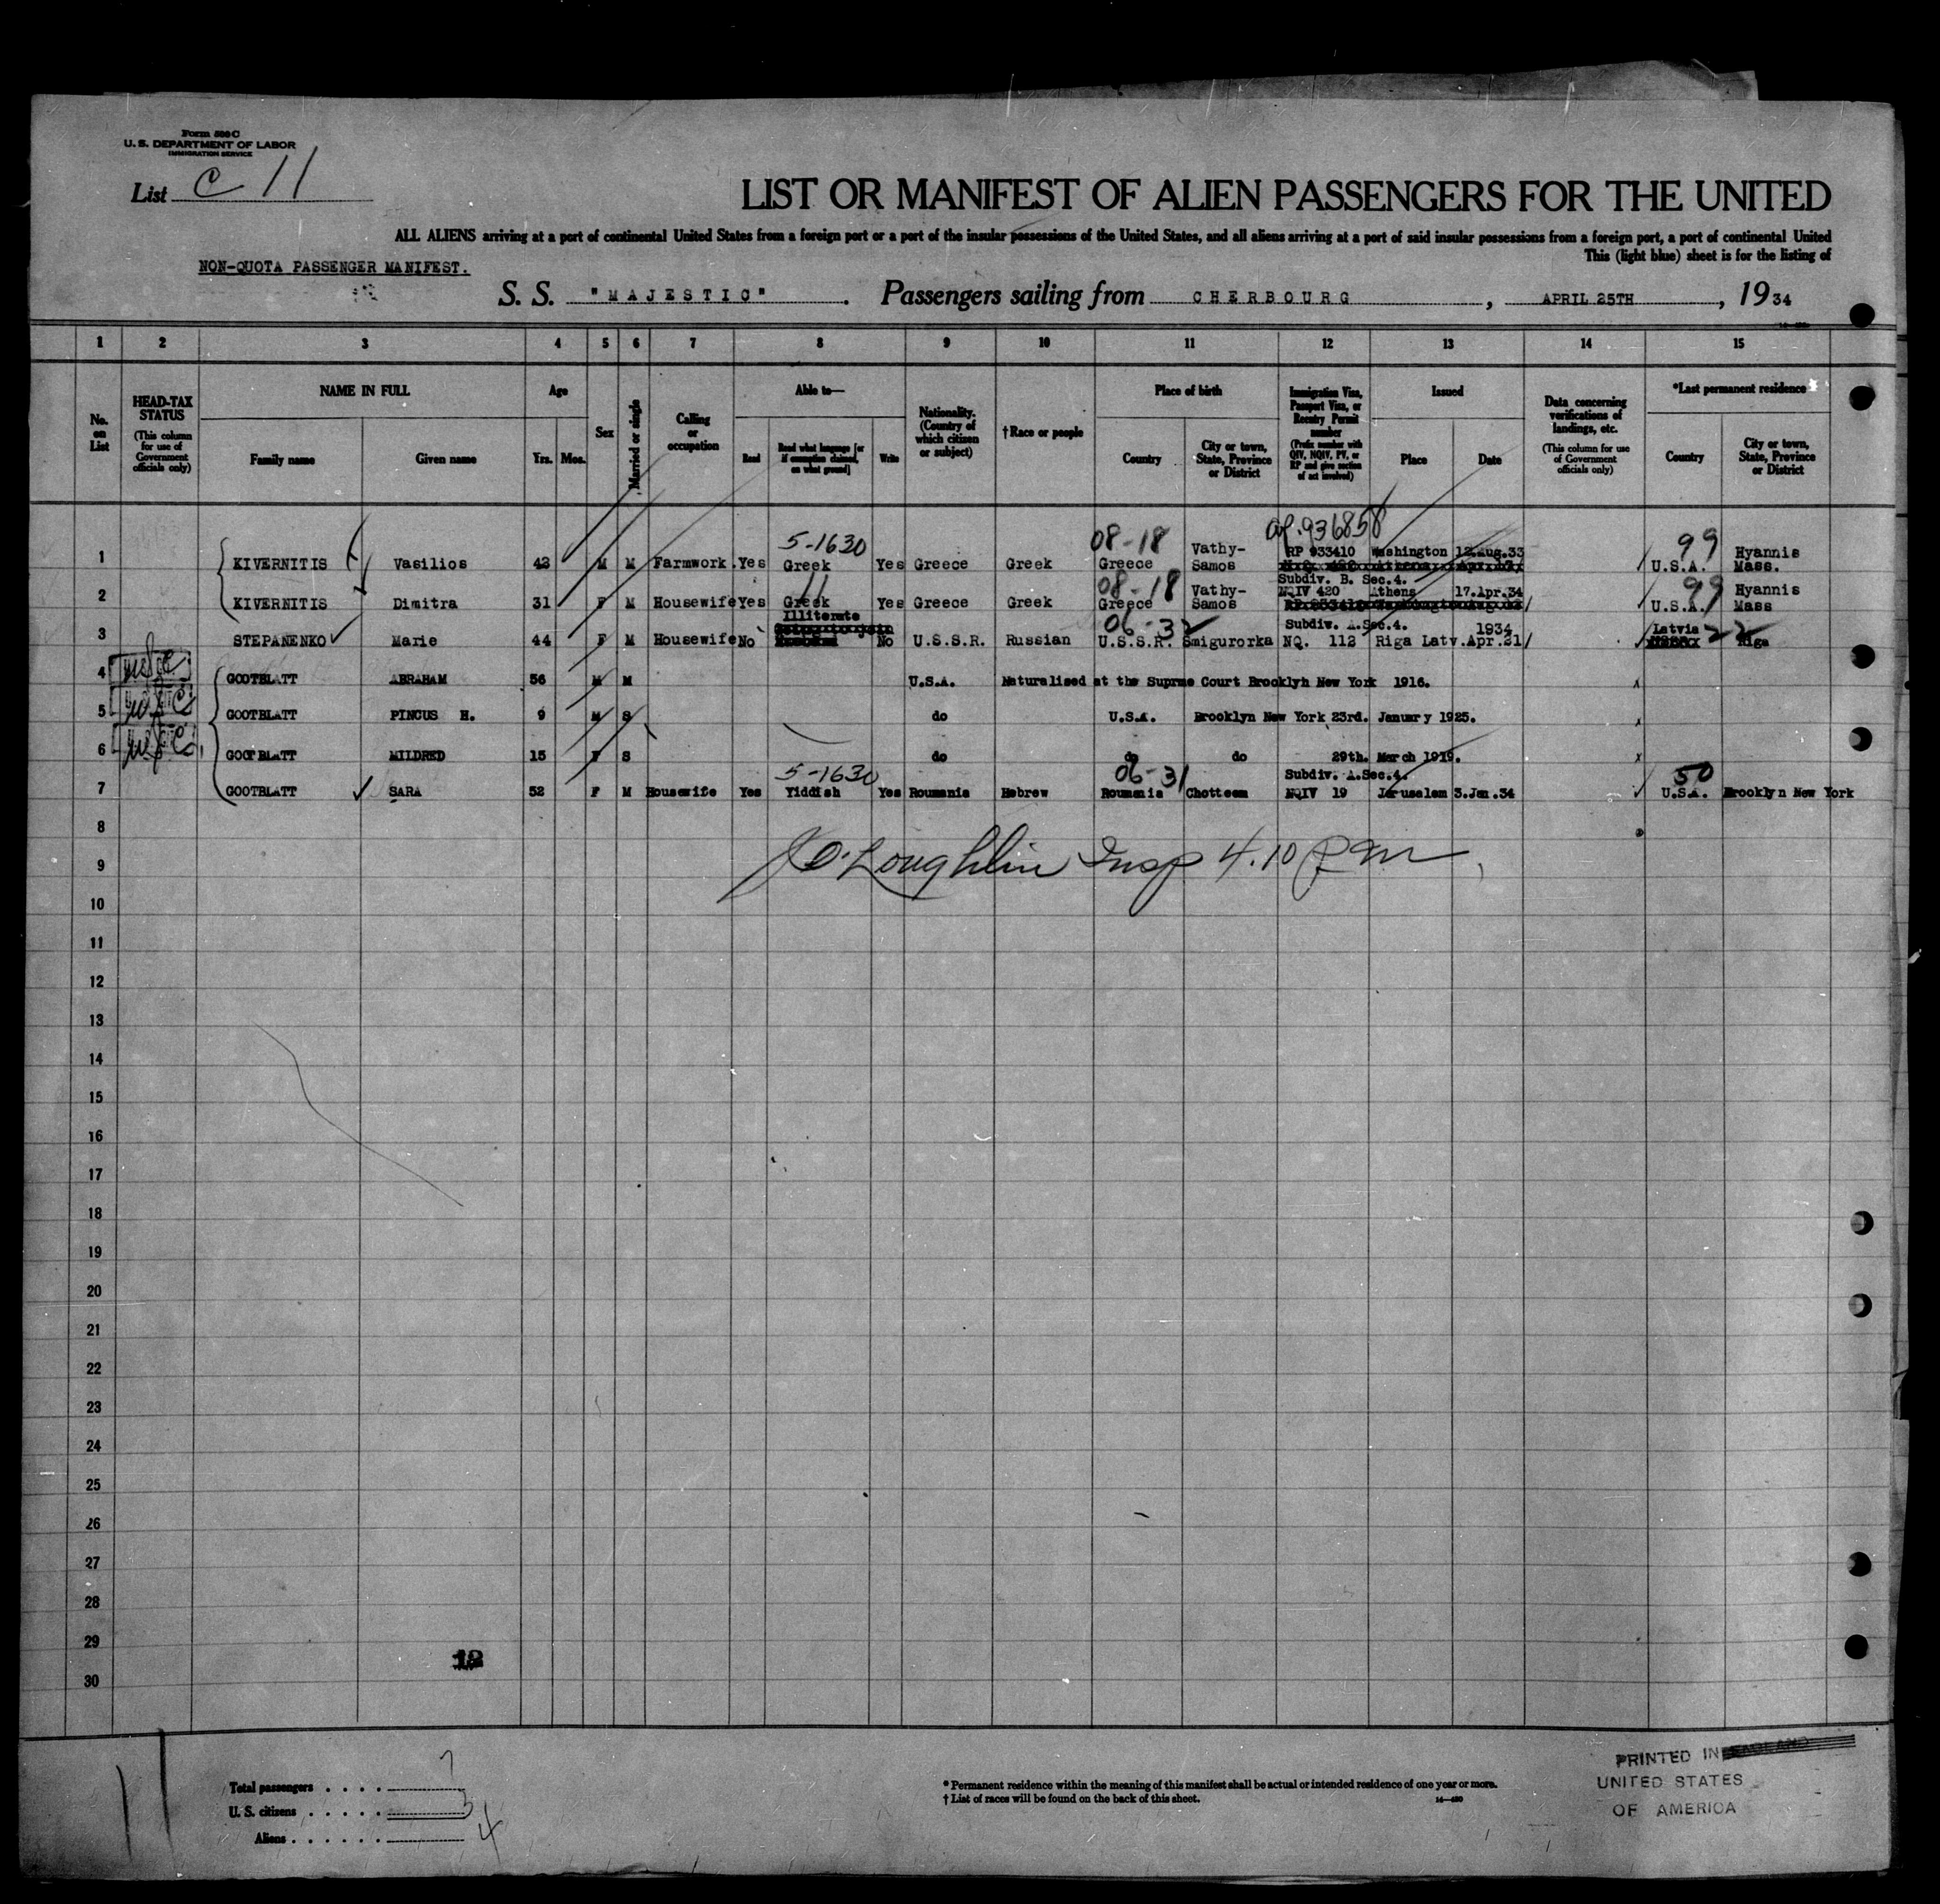 Form 500 C
U. S. DEPARTMENT OF LABOR
IMMIGRATION SERVICE
List C 11
LIST OR MANIFEST OF ALIEN PASSENGERS FOR THE UNITED
ALL ALIENS arriving at a port of continental United States from a foreign port or a port of the insular possessions of the United States, and all aliens arriving at a port of said insular possessions from a foreign port, a port of continental United
This (light blue) sheet is for the listing of
NON-QUOTA PASSENGER MANIFEST.
S. S. "MAJESTIC" . Passengers sailing from CHERBOURG , APRIL 25TH , 1934
1 2 3 4 5 6 7 8 9 10 11 12 13 14 15
No. on List
HEAD-TAX STATUS (This column for use of Government officials only)
NAME IN FULL
Family name Given name
Age
Yrs. Mos.
Sex
Married or single
Calling or occupation
Able to—
Read Read what language [or if exemption claimed, on what ground] Write
Nationality. (Country of which citizen or subject)
†Race or people
Place of birth
Country City or town, State, Province or District
Immigration Visa, Passport Visa, or Reentry Permit number (Prefix number with QIV, NQIV, PV, or RP and give section of act involved)
Issued
Place Date
Data concerning verifications of landings, etc. (This column for use of Government officials only)
*Last permanent residence
Country City or town, State, Province or District
5-1630 08-18 936858 99
1 KIVERNITIS Vasilios 42 M M Farmwork. Yes Greek Yes Greece Greek Greece Vathy-Samos RP 933410 Washington 12.Aug.33 U.S.A. Hyannis Mass.
11 08-18 Subdiv. B. Sec.4. 99
2 KIVERNITIS Dimitra 31 F M Housewife Yes Greek Yes Greece Greek Greece Vathy-Samos NQIV 420 Athens 17.Apr.34 U.S.A. Hyannis Mass
Illiterate 06-32 Subdiv. A.Sec.4. 1934 Latvia 22
3 STEPANENKO Marie 44 F M Housewife No No U.S.S.R. Russian U.S.S.R. Smigurorka NQ. 112 Riga Latv. Apr.21/ Riga
4 USC GOOTBLATT ABRAHAM 56 M M U.S.A. Naturalised at the Suprme Court Brooklyn New York 1916.
5 USC GOOTBLATT PINCUS H. 9 M S do U.S.A. Brooklyn New York 23rd. January 1925.
6 USC GOOTBLATT MILDRED 15 F S do do do 29th. March 1919.
5-1630 06-31 Subdiv. A.Sec.4. 50
7 GOOTBLATT SARA 52 F M Housewife Yes Yiddish Yes Roumania Hebrew Roumania Chotteem NQIV 19 Jerusalem 3.Jan.34 U.S.A. Brooklyn New York
8
O'Loughlin Insp 4.10 PM
9
10
11
12
13
14
15
16
17
18
19
20
21
22
23
24
25
26
27
28
29
12
30
11
Total passengers . . . . 7
U. S. citizens . . . . . 3
Aliens . . . . . . 4
* Permanent residence within the meaning of this manifest shall be actual or intended residence of one year or more.
† List of races will be found on the back of this sheet.
PRINTED IN
UNITED STATES
OF AMERICA